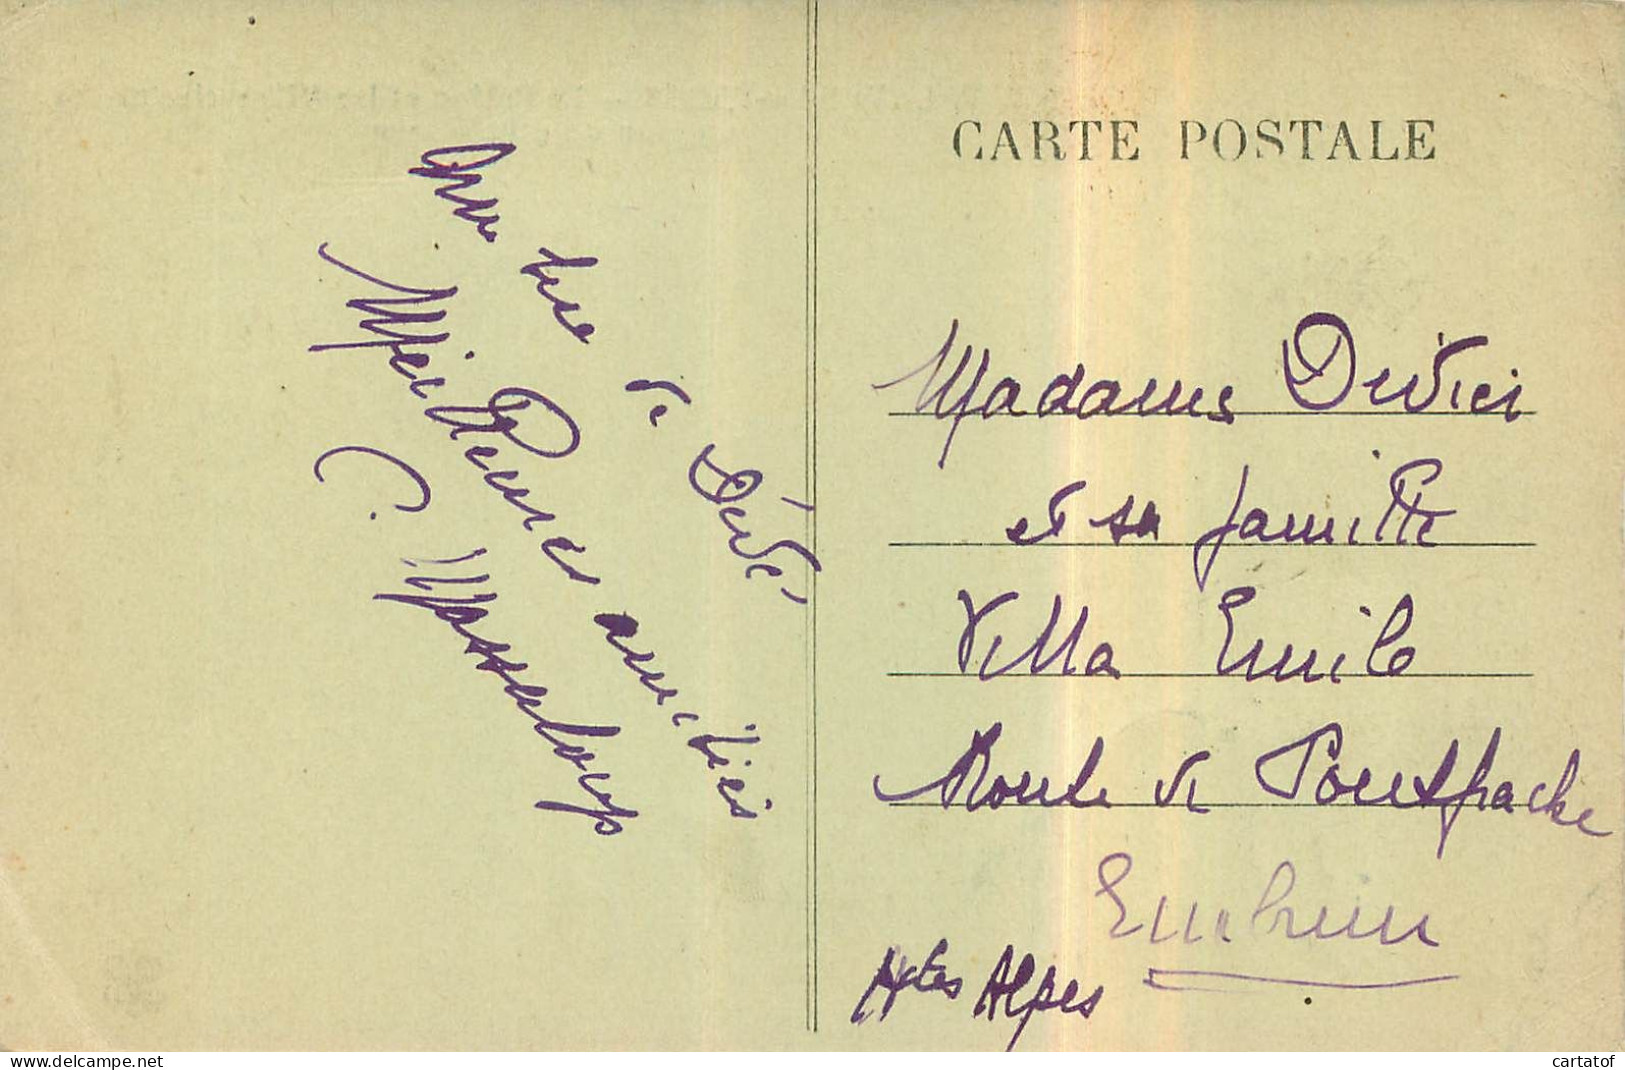 Une vue de Déols,
Meilleures amitiés
C. Masseloup
CARTE POSTALE
Madame Duvier
et sa famille
Villa Emile
Route de Pontfrache
Embrun
Htes Alpes
www.delcampe.net
cartatof